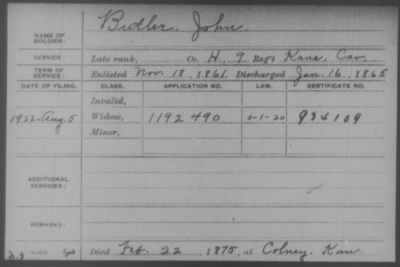 NAME OF SOLDIER: Butler, John.
SERVICE: Late rank, Co. H, 9 Reg't Kans. Cav.
TERM OF SERVICE: Enlisted Nov. 18, 1861, Discharged Jan. 16, 1865
DATE OF FILING. CLASS. APPLICATION NO. LAW. CERTIFICATE NO.
Invalid,
1922, Aug. 5 Widow, 1192490 5-1-20 984109
Minor,
ADDITIONAL SERVICES:
REMARKS:
Died Feb. 22, 1875, at Colney, Kan